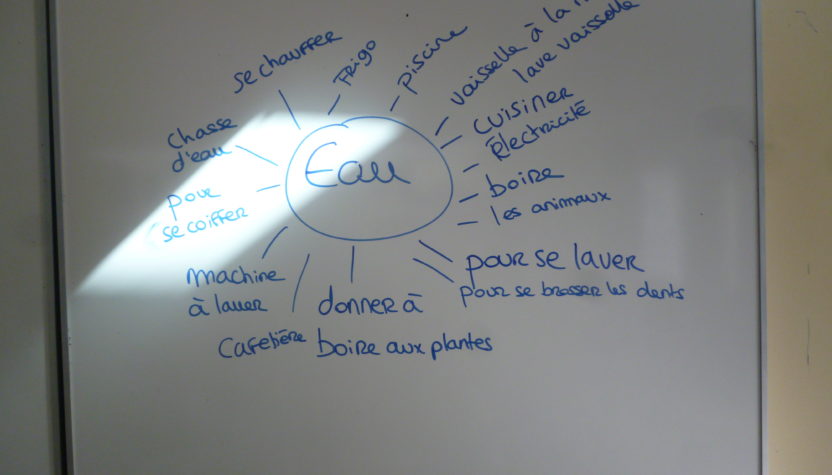 se chauffer
Frigo
piscine
vaisselle à la
lave vaisselle
cuisiner
Électricité
boire
les animaux
pour se laver
pour se brosser les dents
donner à
boire aux plantes
Cafetière
machine
à laver
pour
se coiffer
chasse
d'eau
Eau